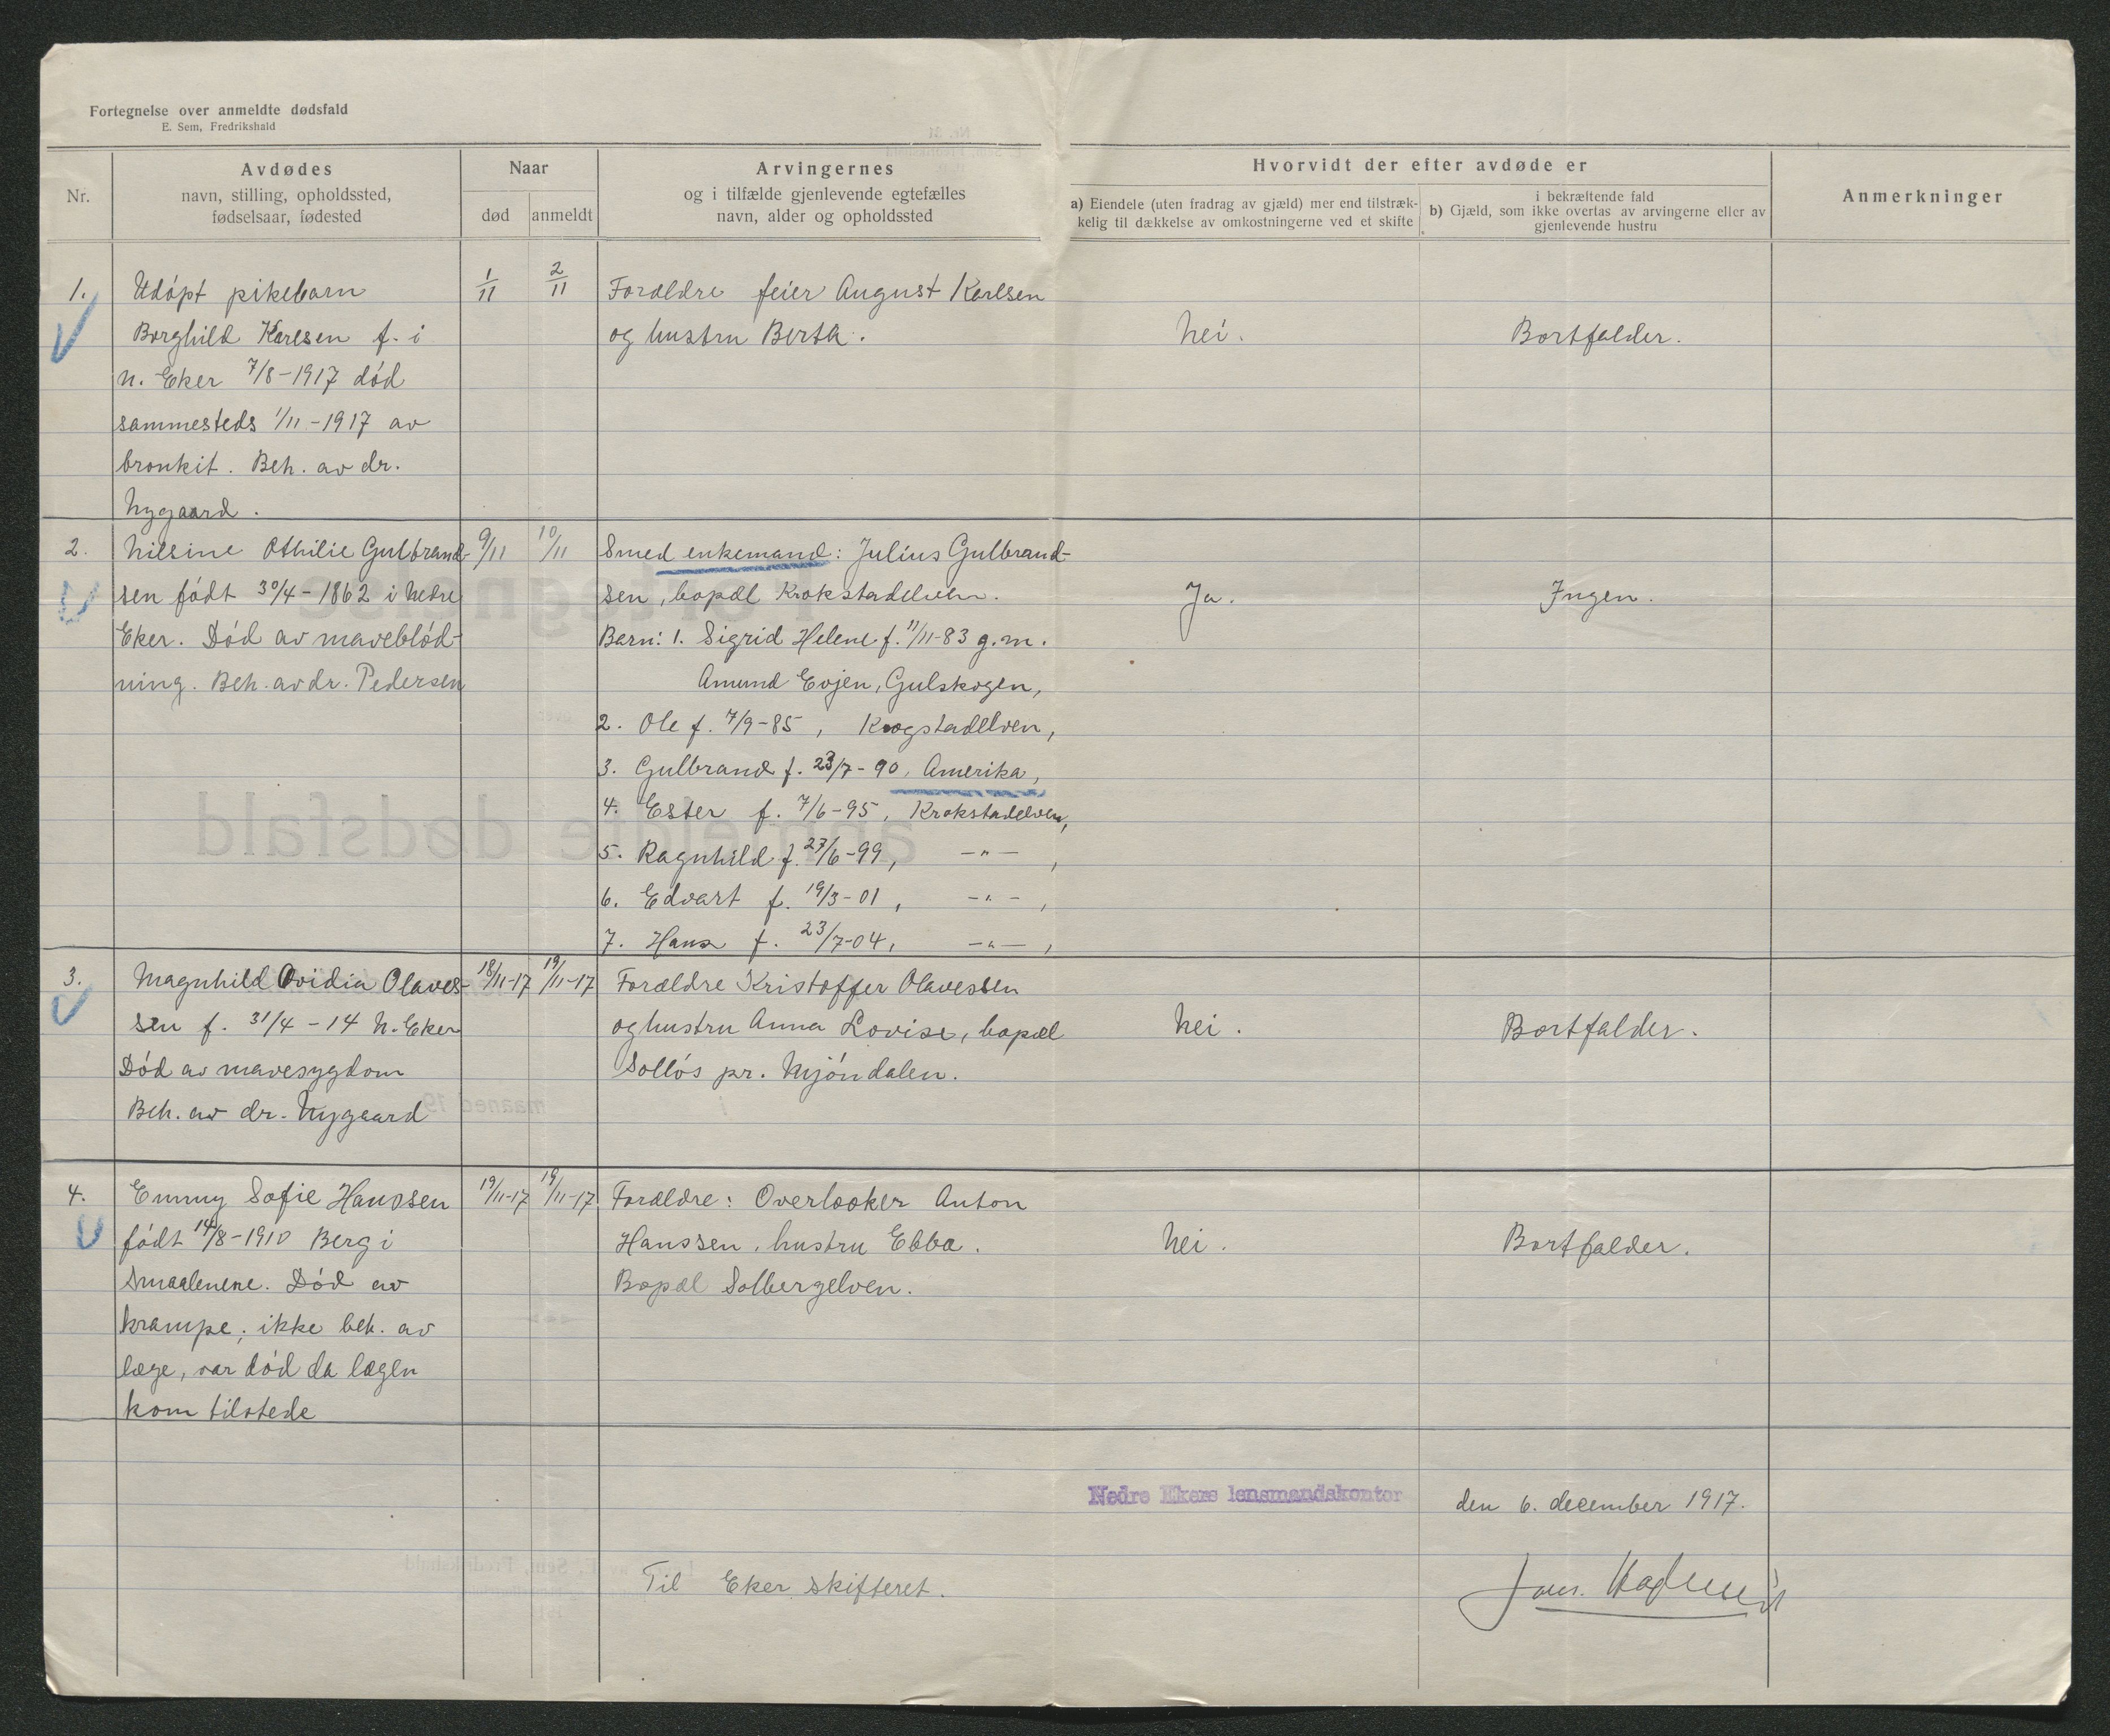 Fortegnelse over anmeldte dødsfald
E. Sem, Fredrikshald
Nr.
Avdødes
navn, stilling, opholdssted,
fødselsaar, fødested
Naar
død
anmeldt
Arvingernes
og i tilfælde gjenlevende egtefælles
navn, alder og opholdssted
Hvorvidt der efter avdøde er
a) Eiendele (uten fradrag av gjæld) mer end tilstræk-
kelig til dækkelse av omkostningerne ved et skifte
i bekræftende fald
b) Gjæld, som ikke overtas av arvingerne eller av
gjenlevende hustru
Anmerkninger
1.
Udøpt pikebarn
Borghild Karlsen f. i
N. Eker 7/8-1917 død
sammesteds 1/11-1917 av
bronkit. Beh. av dr.
Nygaard.
1/11
2/11
Forældre feier August Karlsen
og hustru Berta.
Nei.
Bortfalder.
2.
Nilsine Othilie Gulbrand-
sen født 30/4-1862 i Nedre
Eker. Død av maveblød-
ning. Beh. av dr. Pedersen
9/11
10/11
Smed enkemand: Julius Gulbrand-
sen, bopæl Krokstadelven.
Barn: 1. Sigrid Helene f. 11/11-83 g.m.
Amund Evjen, Gulskogen,
2. Ole f. 7/9-85, Krogstadelven,
3. Gulbrand f. 23/7-90, Amerika,
4. Ester f. 7/6-95, Krokstadelven,
5. Ragnhild f. 27/6-99, -"-,
6. Edvart f. 19/3-01, -"-,
7. Hans f. 23/7-04, -"-,
Ja.
Ingen.
3.
Magnhild Ovidia Olaves-
sen f. 31/4-14 N. Eker
Død av mavesygdom
Beh. av dr. Nygaard
18/11-17
19/11-17
Forældre Kristoffer Olavessen
og hustru Anna Lovise, bopæl
Solløs pr. Mjøndalen.
Nei.
Bortfalder.
4.
Emmy Sofie Hanssen
født 14/8-1910 Berg i
Smaalenene. Død av
krampe; ikke beh. av
læge, var død da lægen
kom tilstede
19/11-17
19/11-17
Forældre: Overlooker Anton
Hanssen, hustru Ebba.
Bopæl Solbergelven.
Nei.
Bortfalder.
Nedre Ekers lensmandskontor
den 6. december 1917.
Til Eker skifteret.